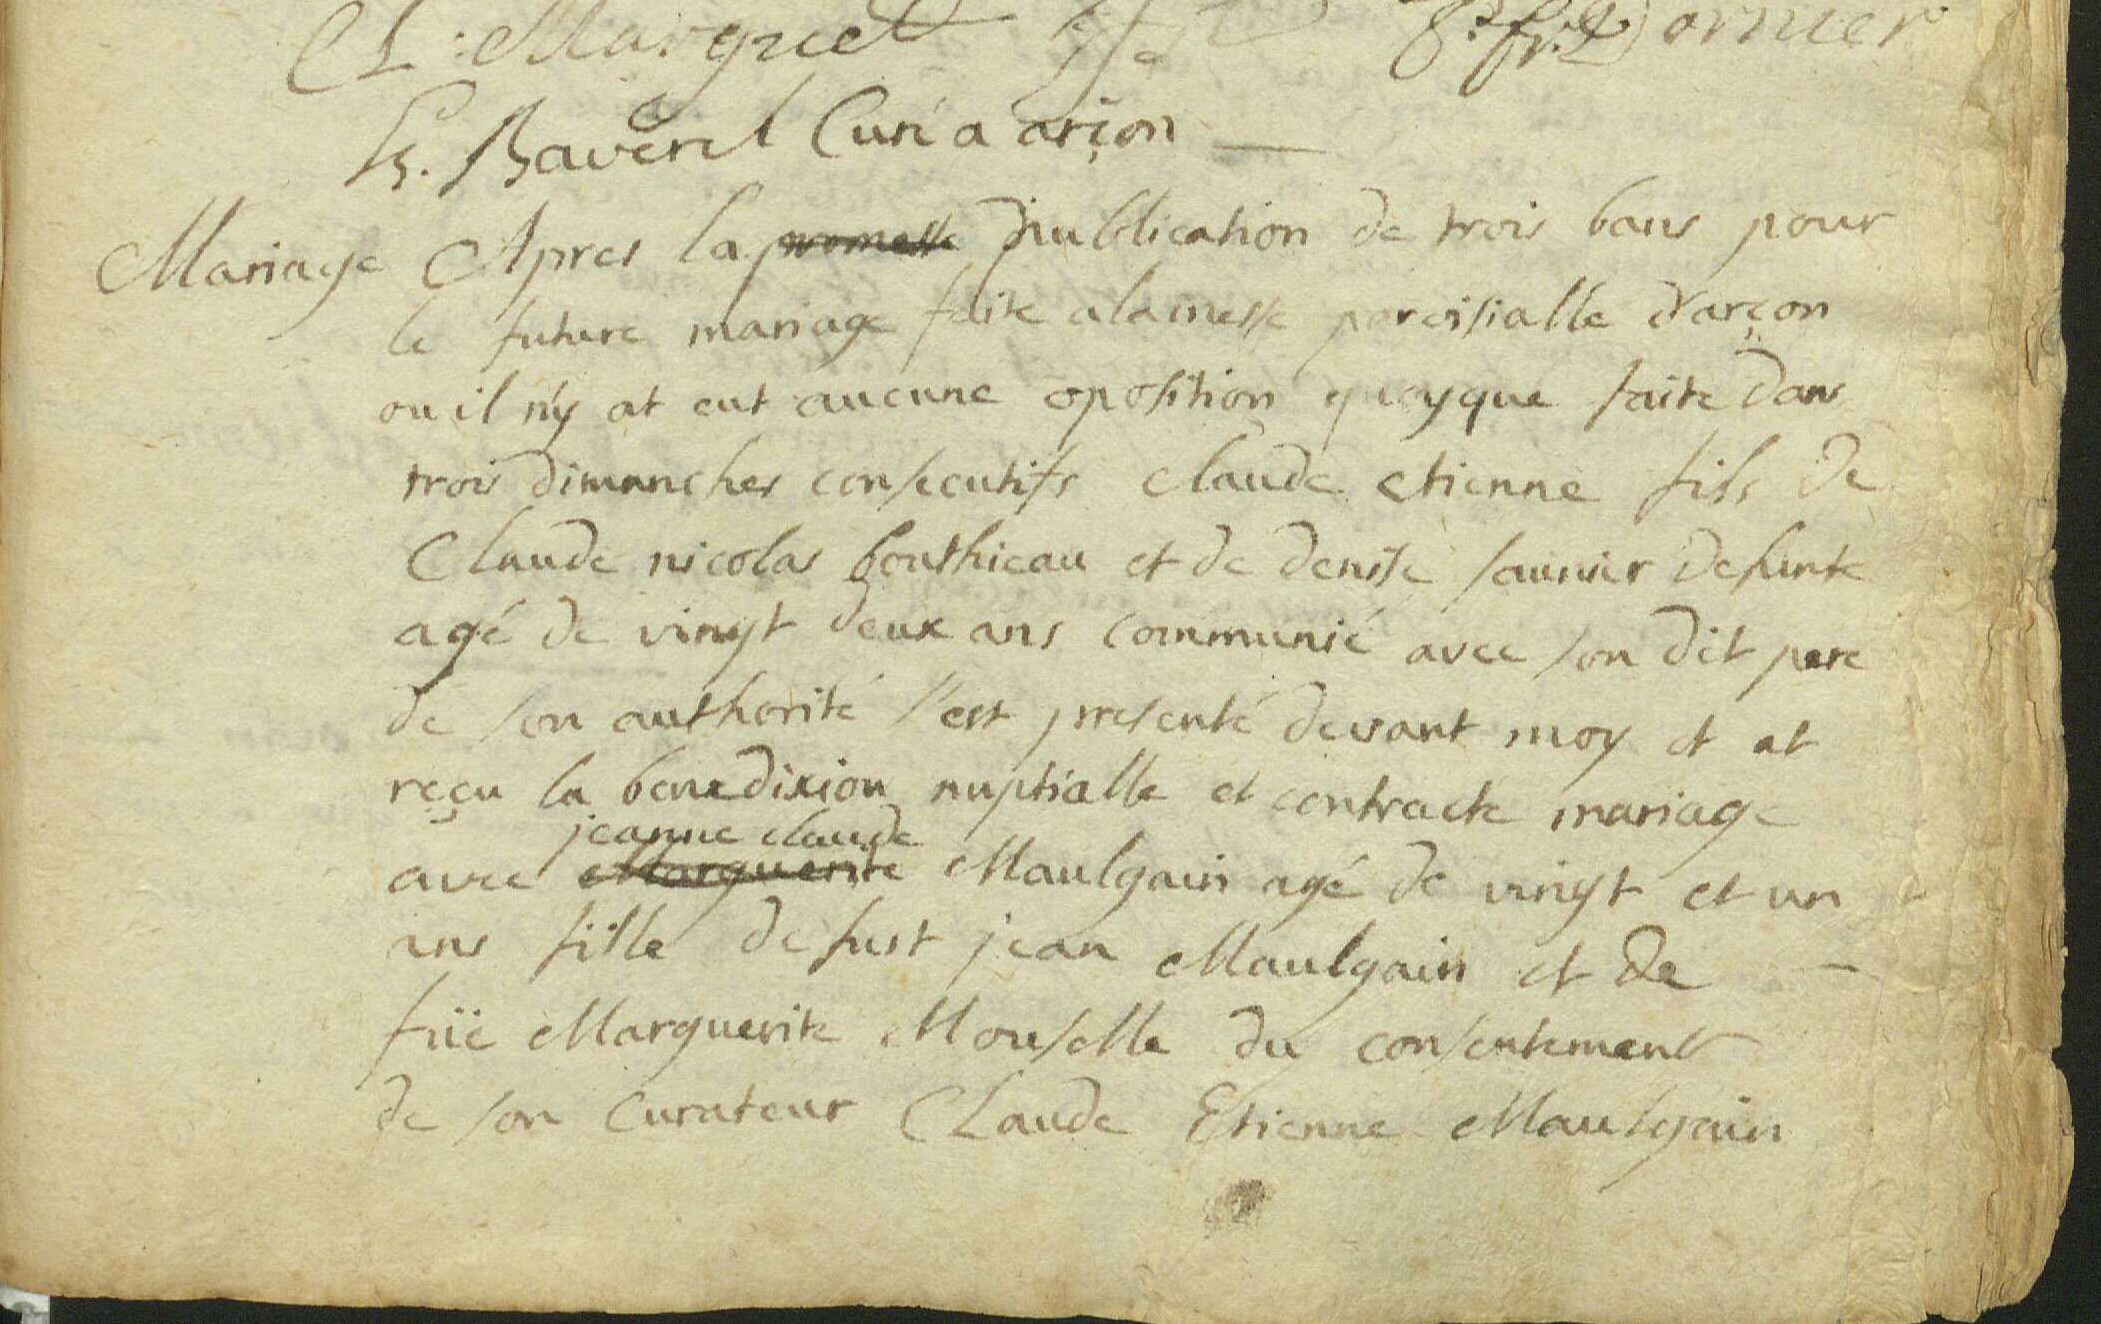 Cl: Marguet J fr: Dornier
Baverel Curé a arçon
Mariage Apres la promesse publication de trois bans pour
le future mariage faite a la messe paroisialle d'arçon
ou il n'y at eut aucune oposition quoyque faite dans
trois dimanches consecutifs Claude etienne fils de
Claude nicolas bouthieau et de denise saunier defunte
agé de vingt deux ans communié avec son dit pere
de son authorité s'est presenté devant moy et at
reçu la benedixion nuptialle et contracte mariage
jeanne claude
avec Marguerite Maulgain agé de vingt et un
ans fille de fust jean Maulgain et de
füe Marguerite Mouselle du consentement
de son curateur Claude Etienne Maulgain